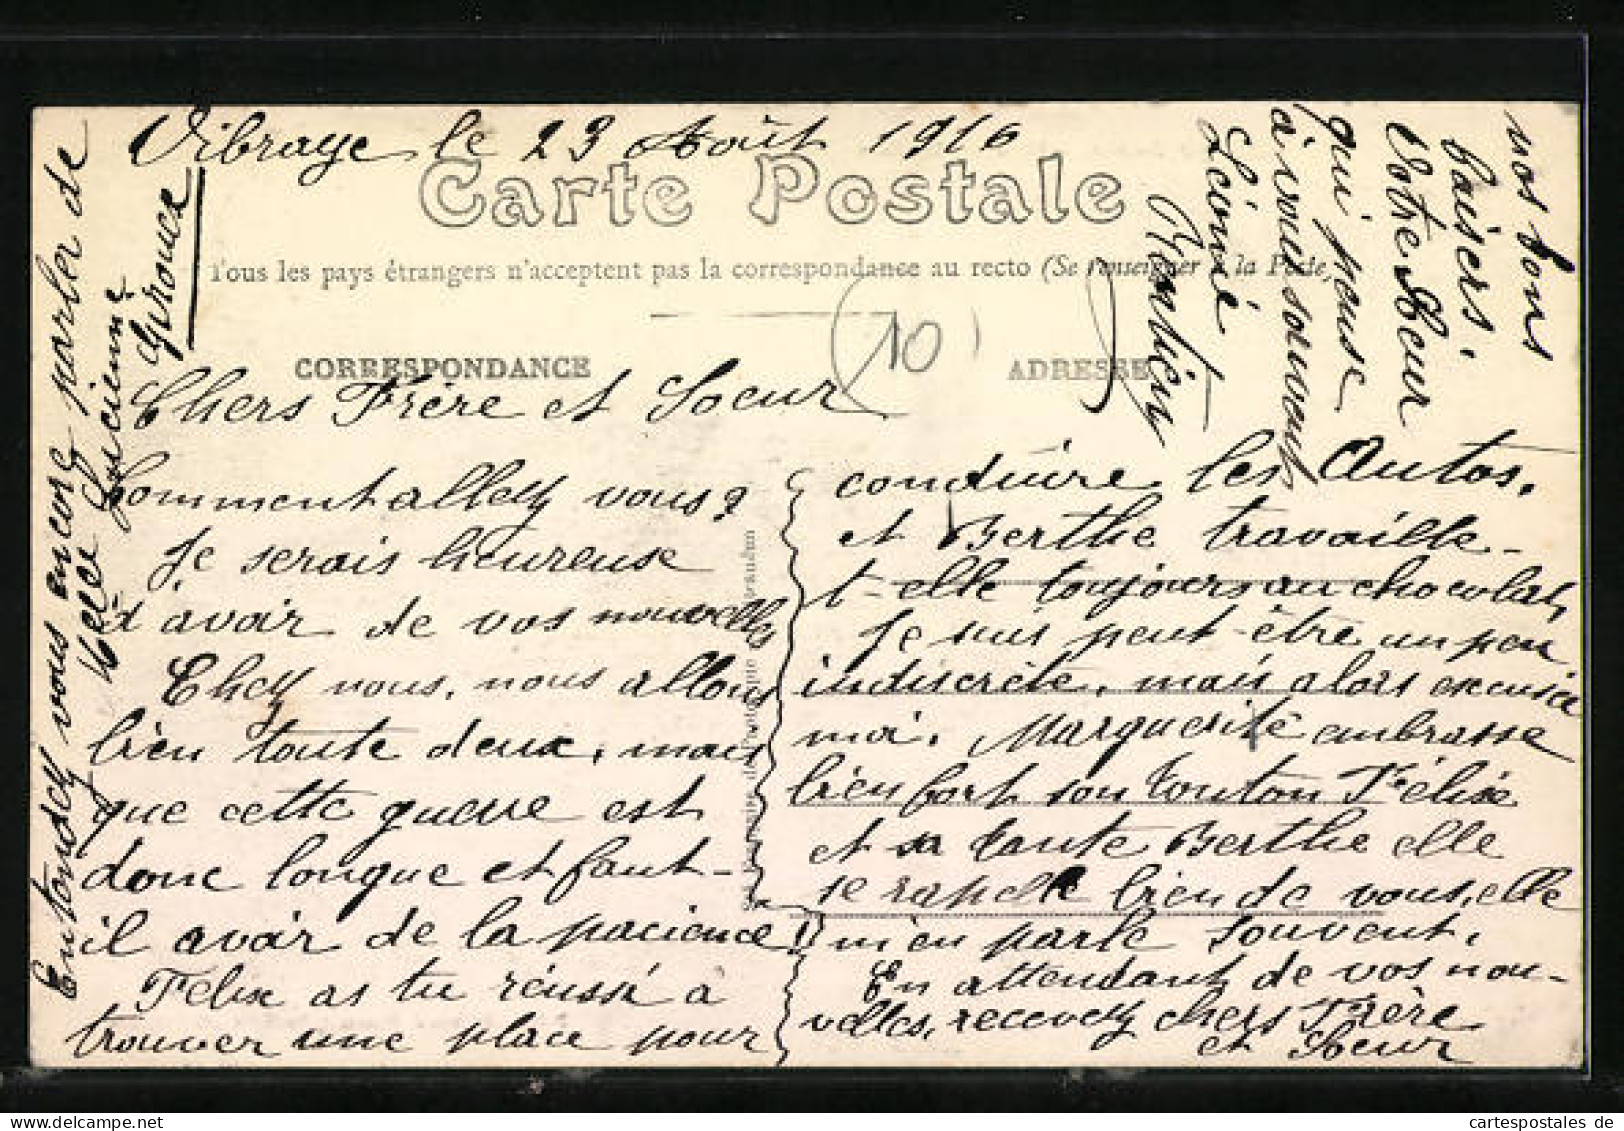 Vibraye le 23 Août 1916
Carte Postale
Tous les pays étrangers n'acceptent pas la correspondance au recto (Se renseigner à la Poste)
10
CORRESPONDANCE
ADRESSE
Chers Frère et Soeur
Comment allez vous?
Je serais heureuse
d'avoir de vos nouvelles
Chez nous, nous allons
bien toute deux, mais
que cette guerre est
donc longue et faut-
il avoir de la pacience!!
Félix as tu réussi à
trouver une place pour
conduire les Autos.
et Berthe travaille-
t-elle toujours au chocolat,
Je suis peut-être un peu
indiscrète, mais alors excusez
moi. Marguerite embrasse
bien fort son Tonton Félix
et sa tante Berthe elle
se rapelle bien de vous, elle
m'en parle souvent.
En attendant de vos nou-
velles, recevez chers Frère
et Soeur
nos bons
baisers.
Votre Soeur
qui pense
à vous souvent
Entendez vous encore parler de
Melle Lucienne
Girouce